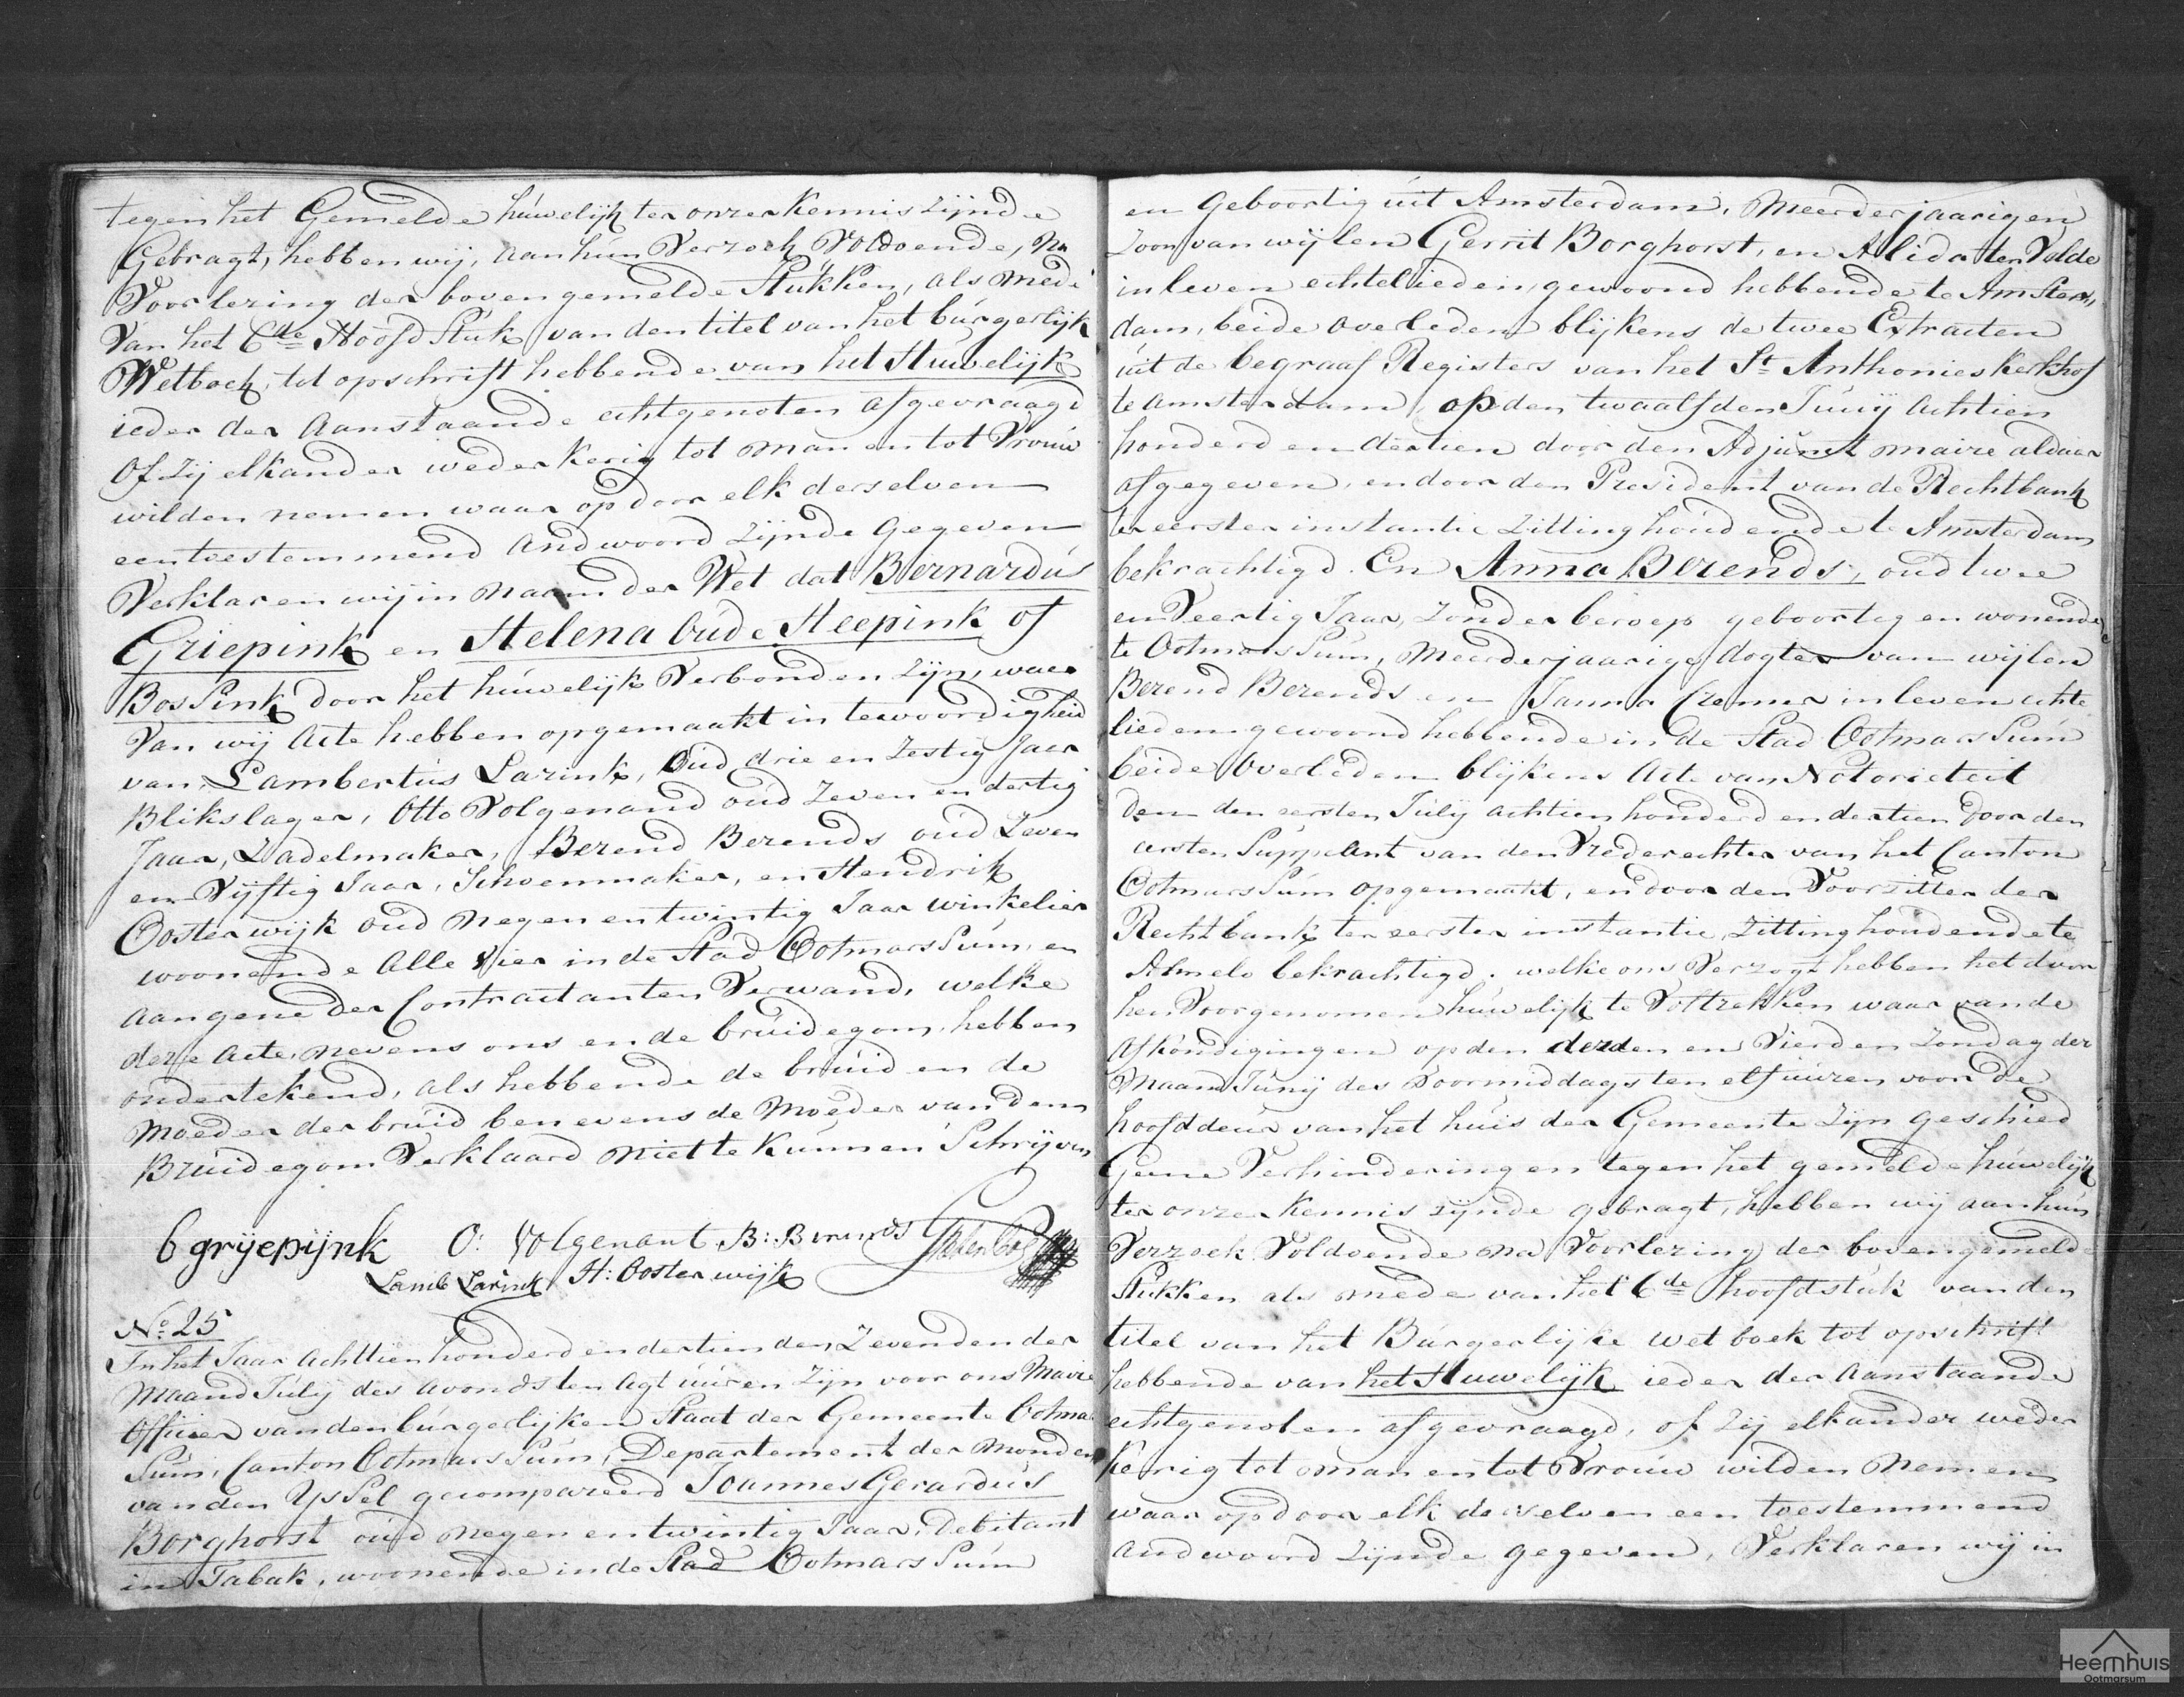 tegen het Gemelde húwelijk ter onzer Kennis zijnde
Gebragt, hebben wij, aan hún Verzoek Voldoende, Na
Voorlezing der bovengemelde Stukken, als mede
Van het 6de Hoofd Stuk van den titel van het burgerlijk
Wetboek, tot opschrift hebbende van het Húwelijk
ieder der Aanstaande echtgenoten afgevraagd
Of zij elkander wederkerig tot man en tot Vrouw
wilden nemen waar op door elk derselven
een toestemmend Andwoord Zijnde Gegeven
Verklaren wij in Naam der Wet dat Bernardús
Griepink en Helena Oude Heepink of
Bossink door het húwelijk Verbonden zijn, waar
Van wij Acte hebben opgemaakt in tewoordigheid
van Lambertús Larink, Oúd drie en Zestig Jaar
Blikslager, Otto Volgenand oúd Zeven en dertig
Jaar, Zadelmaker, Berend Berends oúd Zeven
en Vijftig Jaar, Schoenmaker, en Hendrik
Oosterwijk oúd Negen en twintig Jaar winkelier
woonende Alle Vier in de Stad Ootmarssúm, en
Aangene der Contractanten Verwand, welke
deze Acte nevens ons en de brúidegom hebben
ondertekend, als hebbende de brúid en de
Moeder der brúid benevens de Moeder van den
Brúidegom Verklaard Niet te Kúnnen Schrijven
b grÿepÿnk O: Volgenant B: Berends
Lamb Larink H: Oosterwijk
No: 25
In het Jaar Achttienhonderd en dertien den Zevenden der
Maand Júlij des avonds ten Agt úúren zijn voor ons Maire
Officier van den búrgerlijken Staat der Gemeente Ootmar
Súm, Canton Ootmarssúm, Departement der Monden
van den Yssel gecompareerd Joannes Gerardús
Borghorst oúd negen en twintig Jaar, Debitant
in Tabak, woonende in de Stad Ootmarssúm
en Geboortig úit Amsterdam, Meerderjaarig en
Zoon van wijlen Gerrit Borghorst, en Alida ter Velde
in leven echtelieden, gewoond hebbende te Amster,,
dam, beide overleden blijkens de twee Extracten
úit de begraaf Registers van het St Anthonieskerkhof
te Amsterdam, op den twaalfden Júnij Achtien
honderd en dertien door den Adjúnct maire aldaar
afgegeven, en door den President van de Rechtbank
ter eerster instantie Zitting hoúdende te Amsterdam
bekrachtigd. En Anna Berends, oúd twee
en Veertig Jaar, Zonder beroep geboortig en wonende
te Ootmarssúm, Meerderjaarige dogter van wijlen
Berend Berends en Janna Cremer in leven echte
lieden gewoond hebbende in de Stad Ootmarssúm
beide Overleden blijkens Acte van Notorieteit
den den eersten Júly achtien honderd en dertien door den
eersten Suppleant van den Vrederechter van het Canton
Ootmarssúm opgemaakt, en door den Voorzitter der
Rechtbank ter eerster instantie, Zitting hoúdende te
Almelo bekrachtigd. welke ons Verzogt hebben het door
hen Voorgenomen húwelijk te Voltrekken waar van de
Afkondigingen op den derden en Vierden Zondag der
Maand Júnij des Voormiddags ten elf úúren voor de
hoofddeúr van het húis der Gemeente Zijn geschied
Geene Verhinderingen tegen het gemelde húwelijk
ter onzer Kennis zijnde gebragt, hebben wij aan hún
Verzoek Voldoende na Voorlezing der bovengemelde
Stukken als mede van het 6de hoofdstúk van den
titel van het Búrgerlijke wetboek tot opschrift
hebbende van het Huwelijk ieder der Aanstaande
echtgenoten afgevraagd, of zij elkander weder
kerig tot man en tot Vrouw wilden Nemen
waar op door elk derselven een toestemmend
andwoord zijnde gegeven, Verklaren wij in
Heemhuis
Ootmarsum